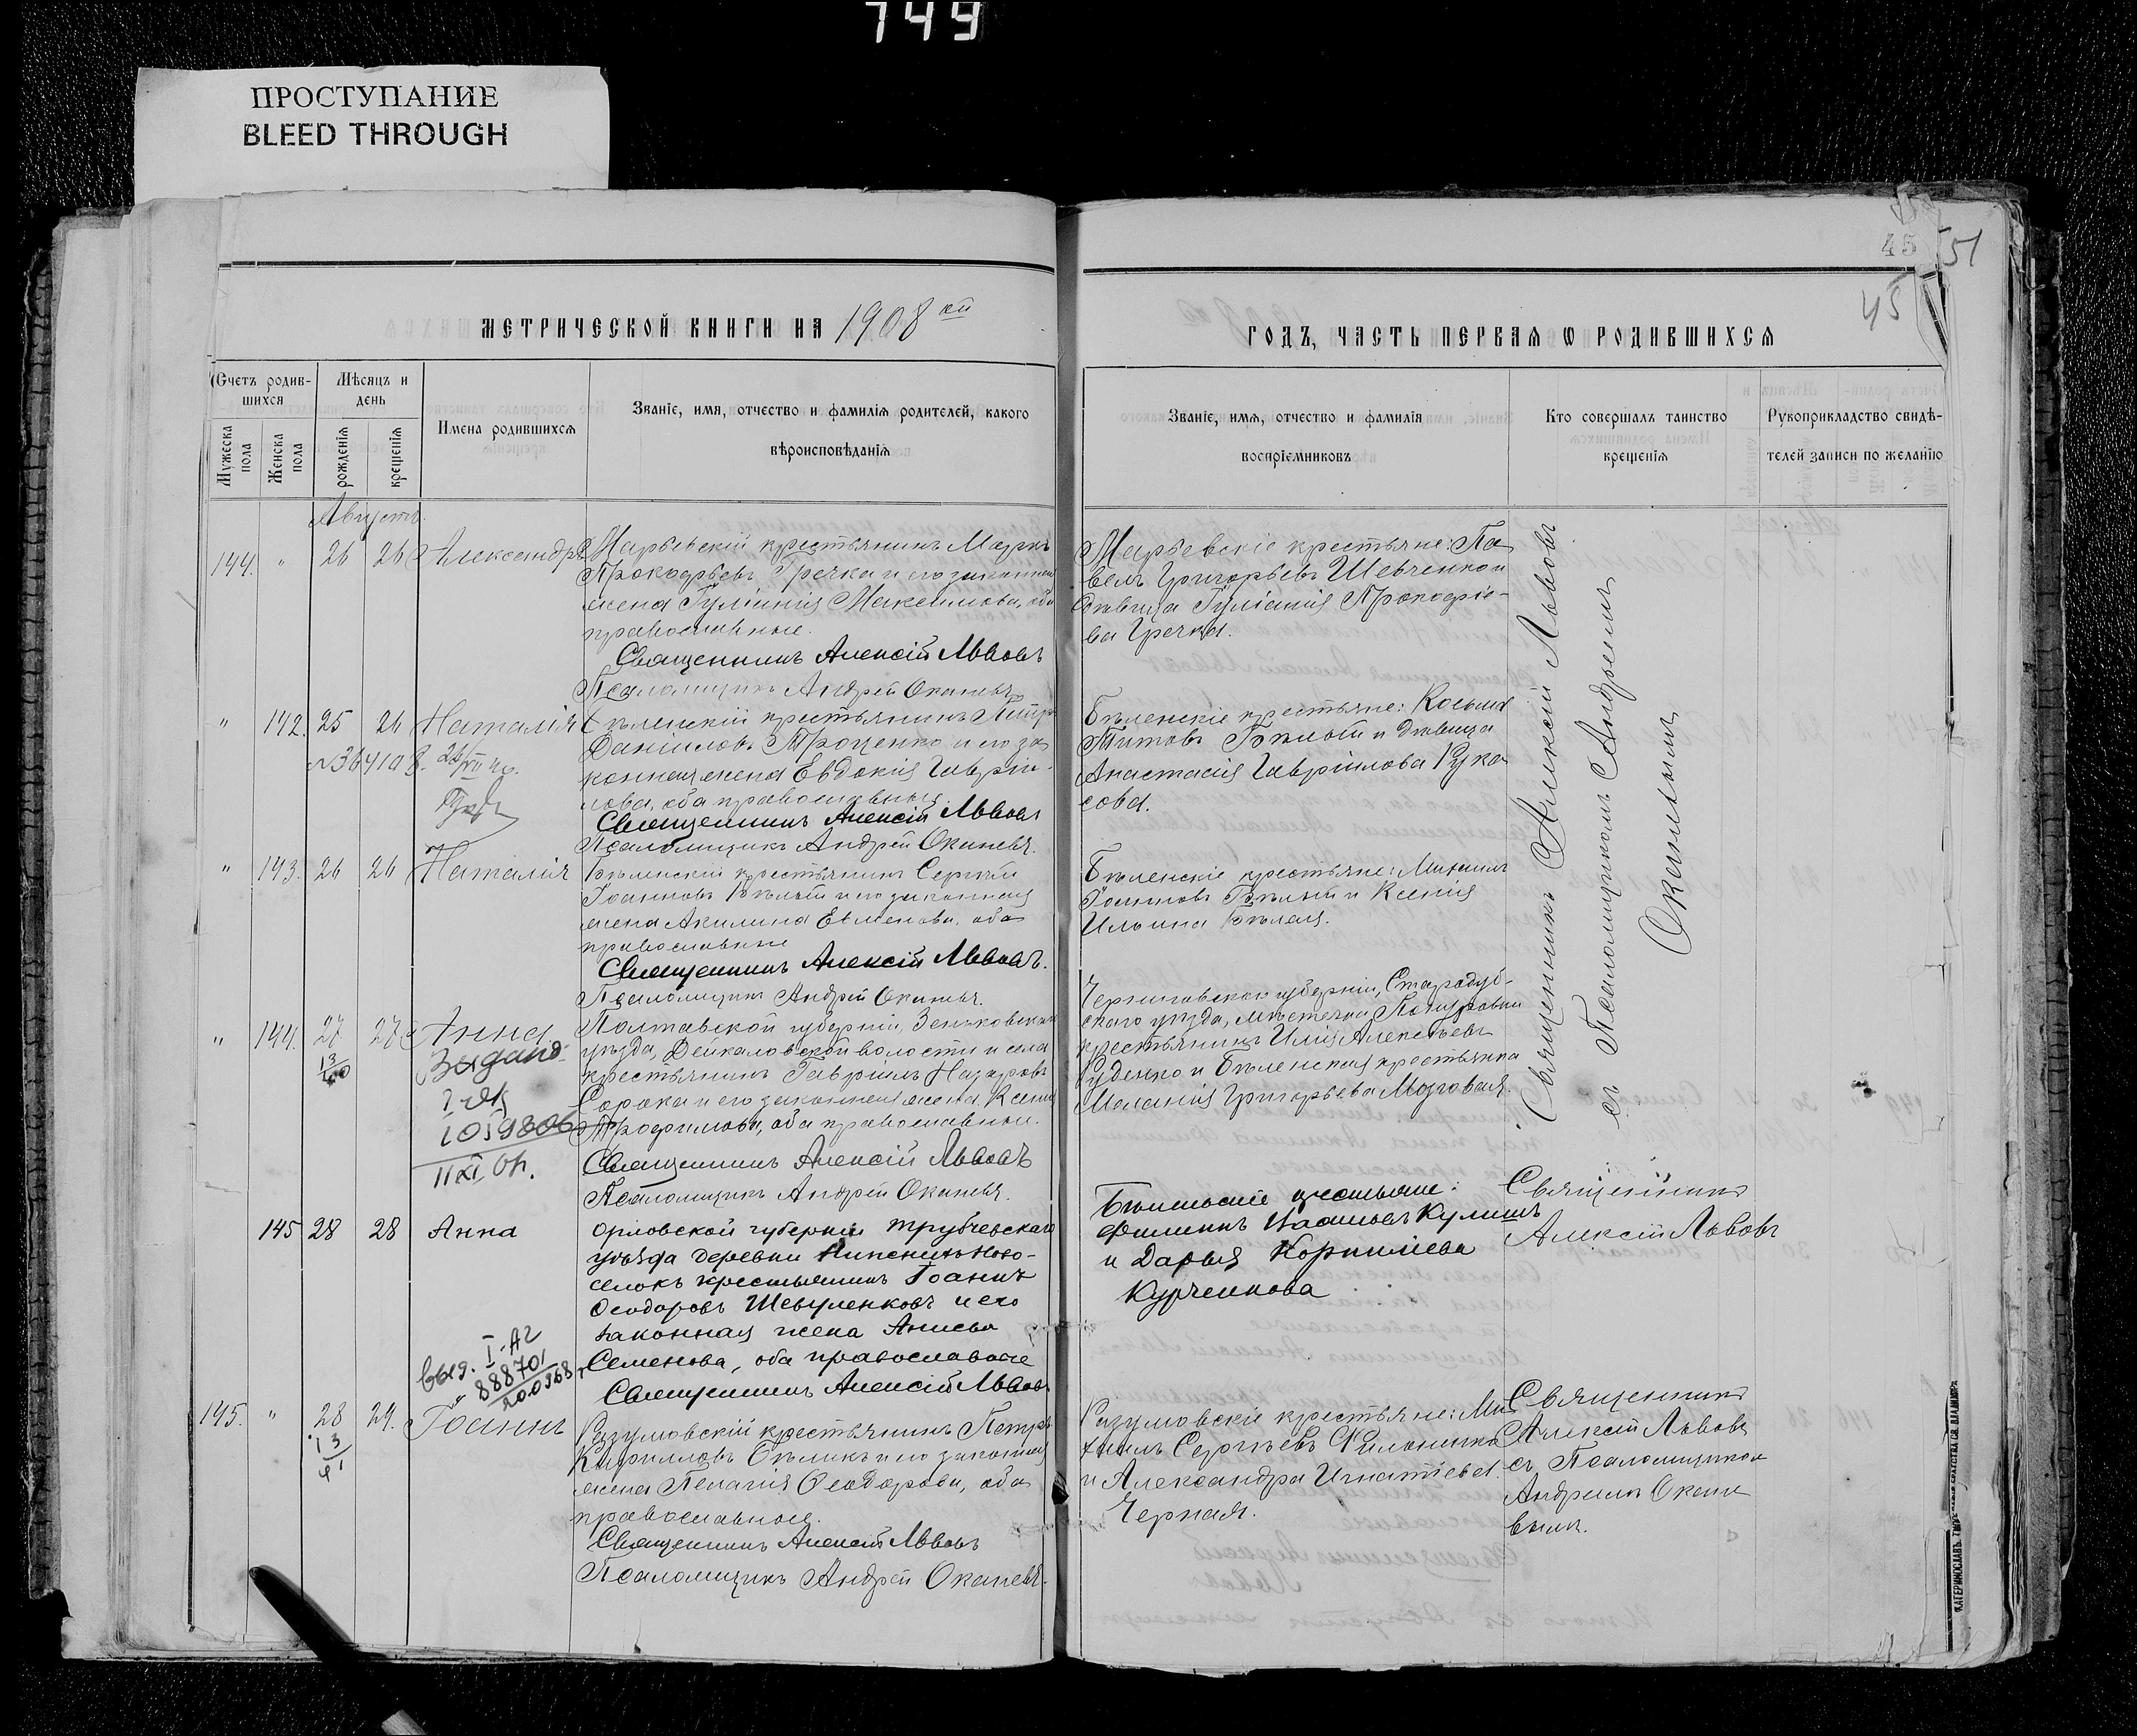 749
ПРОСТУПАНИЕ
BLEED THROUGH
45
51
45
МЕТРИЧЕСКОЙ КНИГИ НА 1908 ой
ГОДЪ, ЧАСТЬ ПЕРВАЯ Ѡ РОДИВШИХСЯ
Счетъ родив-
шихся
Мужеска пола
Женска пола
Мѣсяцъ и
день
рожденія
крещенія
Имена родившихся
Званіе, имя, отчество и фамилія родителей, какого
вѣроисповѣданія
Званіе, имя, отчество и фамилія
воспріемниковъ
Кто совершалъ таинство
крещенія
Рукоприкладство свидѣ-
телей записи по желанію
Августъ
144. " 26 26 Александръ
Марьевскій крестьянинъ Маркъ
Прокофьевъ Гречка и его законная
жена Іуліанія Максимова, оба
православные.
Священникъ Алексій Львовъ
Псаломщикъ Андрей Оканевъ
Марьевскіе крестьяне: Па
велъ Григорьевъ Шевченко и
дѣвица Іуліанія Прокофіе-
ва Гречка.
Священникъ Алексій Львовъ
съ Псаломщикомъ Андреемъ
Оканевымъ
" 142. 25 26 Наталія
Бѣленскій крестьянинъ Петръ
Даніиловъ Троценко и его за
конная жена Евдокія Гавріи-
лова, оба православные
Священникъ Алексій Львовъ
Псаломщикъ Андрей Оканевъ.
Бѣленскіе крестьяне: Косьма
Титовъ Бѣлый и дѣвица
Анастасія Гавріилова Лука
сова.
" 143. 26 26 Наталія
Бѣленскій крестьянинъ Сергій
Іоанновъ Бѣлый и его законная
жена Акилина Евменова, оба
православные
Священникъ Алексій Львовъ.
Псаломщикъ Андрей Оканевъ.
Бѣленскіе крестьяне: Михаилъ
Іоанновъ Бѣлый и Ксенія
Ильина Бѣлая.
" 144. 27 27 Анна
Видано
1059806
11 XI
Полтавской губерніи, Зеньковскаго
уѣзда, Дейкаловской волости и села
крестьянинъ Гавріилъ Назаровъ
Сорока и его законная жена Ксенія
Трофимова, оба православные.
Священникъ Алексій Львовъ
Псаломщикъ Андрей Оканевъ.
Черниговской губерніи, Стародуб-
скаго уѣзда, мѣстечка
крестьянинъ Илія Алексѣевъ
Руденко и Бѣленская крестьянка
Меланія Григорьева Мозговая.
145 28 28 Анна
Орловской губерніи Трубчевскаго
уѣзда деревни
селокъ крестьянинъ Іоаннъ
Ѳеодоровъ Шевуленковъ и его
законная жена Анисья
Семенова, оба православные
Священникъ Алексій Львовъ
Бѣленскіе крестьяне:
Филиппъ Кулишъ
и Дарья Корнилиева
Курченкова
Священникъ
Алексій Львовъ
выд. I-АГ
888701
145. " 28 29. Іоаннъ
Разумовскій крестьянинъ Петръ
Кирилловъ Ѳѣликъ и его законная
жена Пелагія Ѳеодорова, оба
православные.
Священникъ Алексій Львовъ
Псаломщикъ Андрей Оканевъ.
Разумовскіе крестьяне: Ми
хаилъ Сергѣевъ Филоненко
и Александра Игнатіева
Черная.
Священникъ
Алексій Львовъ
съ Псаломщикомъ
Андреемъ Окане
вымъ.